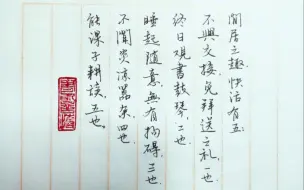 閒居之趣快活有五
不與交接免拜送之礼一也
终日观書鼓琴二也
睡起隨意無有拘礙三也
不聞炎涼囂杂四也
能課子耕读五也